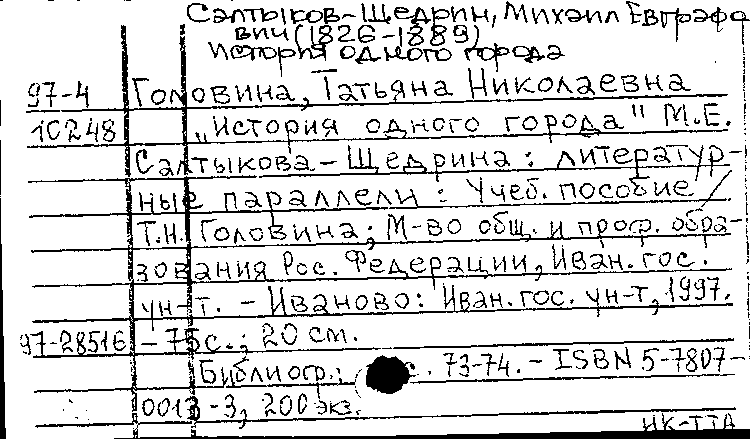 Салтыков-Щедрин, Михаил Евграфо
вич (1826-1889)
История одного города
97-4 Головина, Татьяна Николаевна
10248 „История одного города" М.Е.
Салтыкова-Щедрина: литератур-
ные параллели: Учеб. пособие /
Т.Н. Головина; М-во общ. и проф. обра-
зования Рос. Федерации, Иван. гос.
ун-т. - Иваново: Иван. гос. ун-т, 1997.
97-28516 - 75 с.; 20 см.
Библиогр.: с. 73-74. - ISBN 5-7807-
0013-3, 200 экз.
НК-ТТА